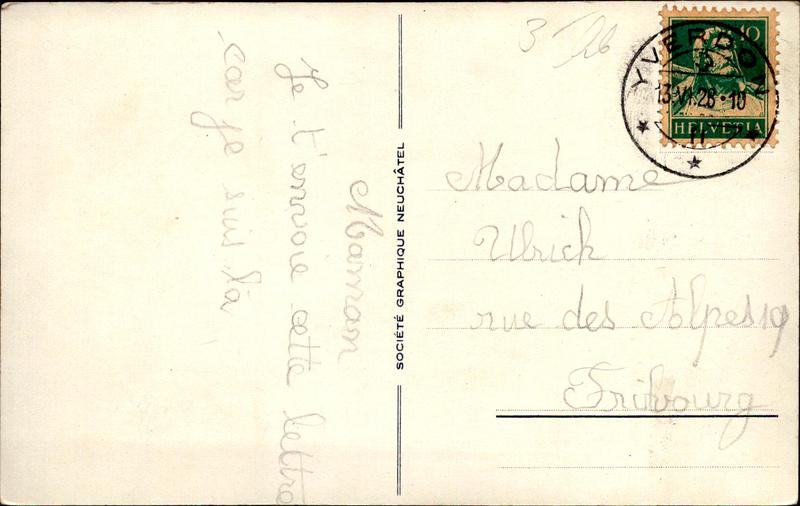 Maman
Je t'envoie cette lettre
car je suis là
SOCIÉTÉ GRAPHIQUE NEUCHÂTEL
10
HELVETIA
YVERDON
13.VI.28·10
Madame
Ulrich
rue des Alpes 19
Fribourg